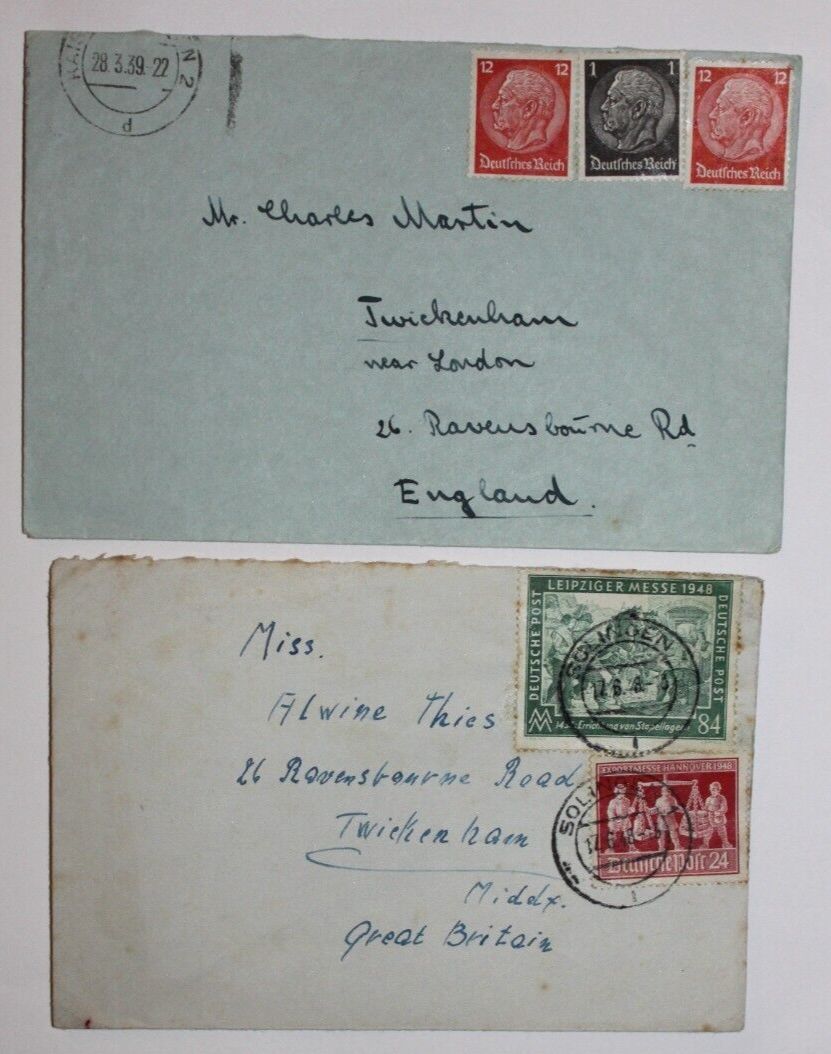 28.3.39.-22
2
d
12 12
Deutsches Reich
1 1
Deutsches Reich
12 12
Deutsches Reich
Mr. Charles Martin
Twickenham
near London
26. Ravensboūrne Rd
England.
LEIPZIGER MESSE 1948
DEUTSCHE POST
DEUTSCHE POST
Errichtung von Stapellagern
84
SOLINGEN
EXPORTMESSE HANNOVER 1948
Deutsche Post 24
Miss.
Alwine Thies
26 Ravensbourne Road
Twickenham
Middx.
Great Britain